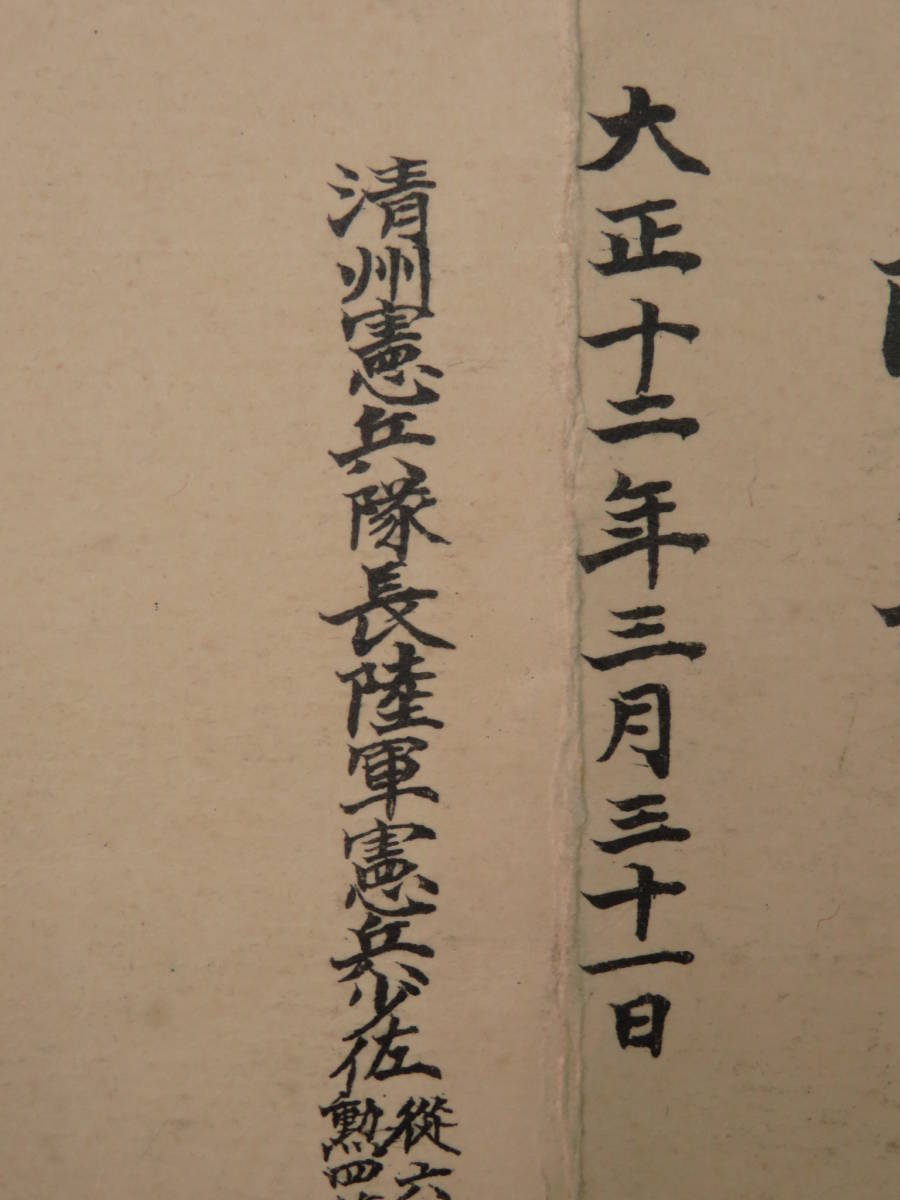 大正十二年三月三十一日
清州憲兵隊長陸軍憲兵少佐
從六
勲四